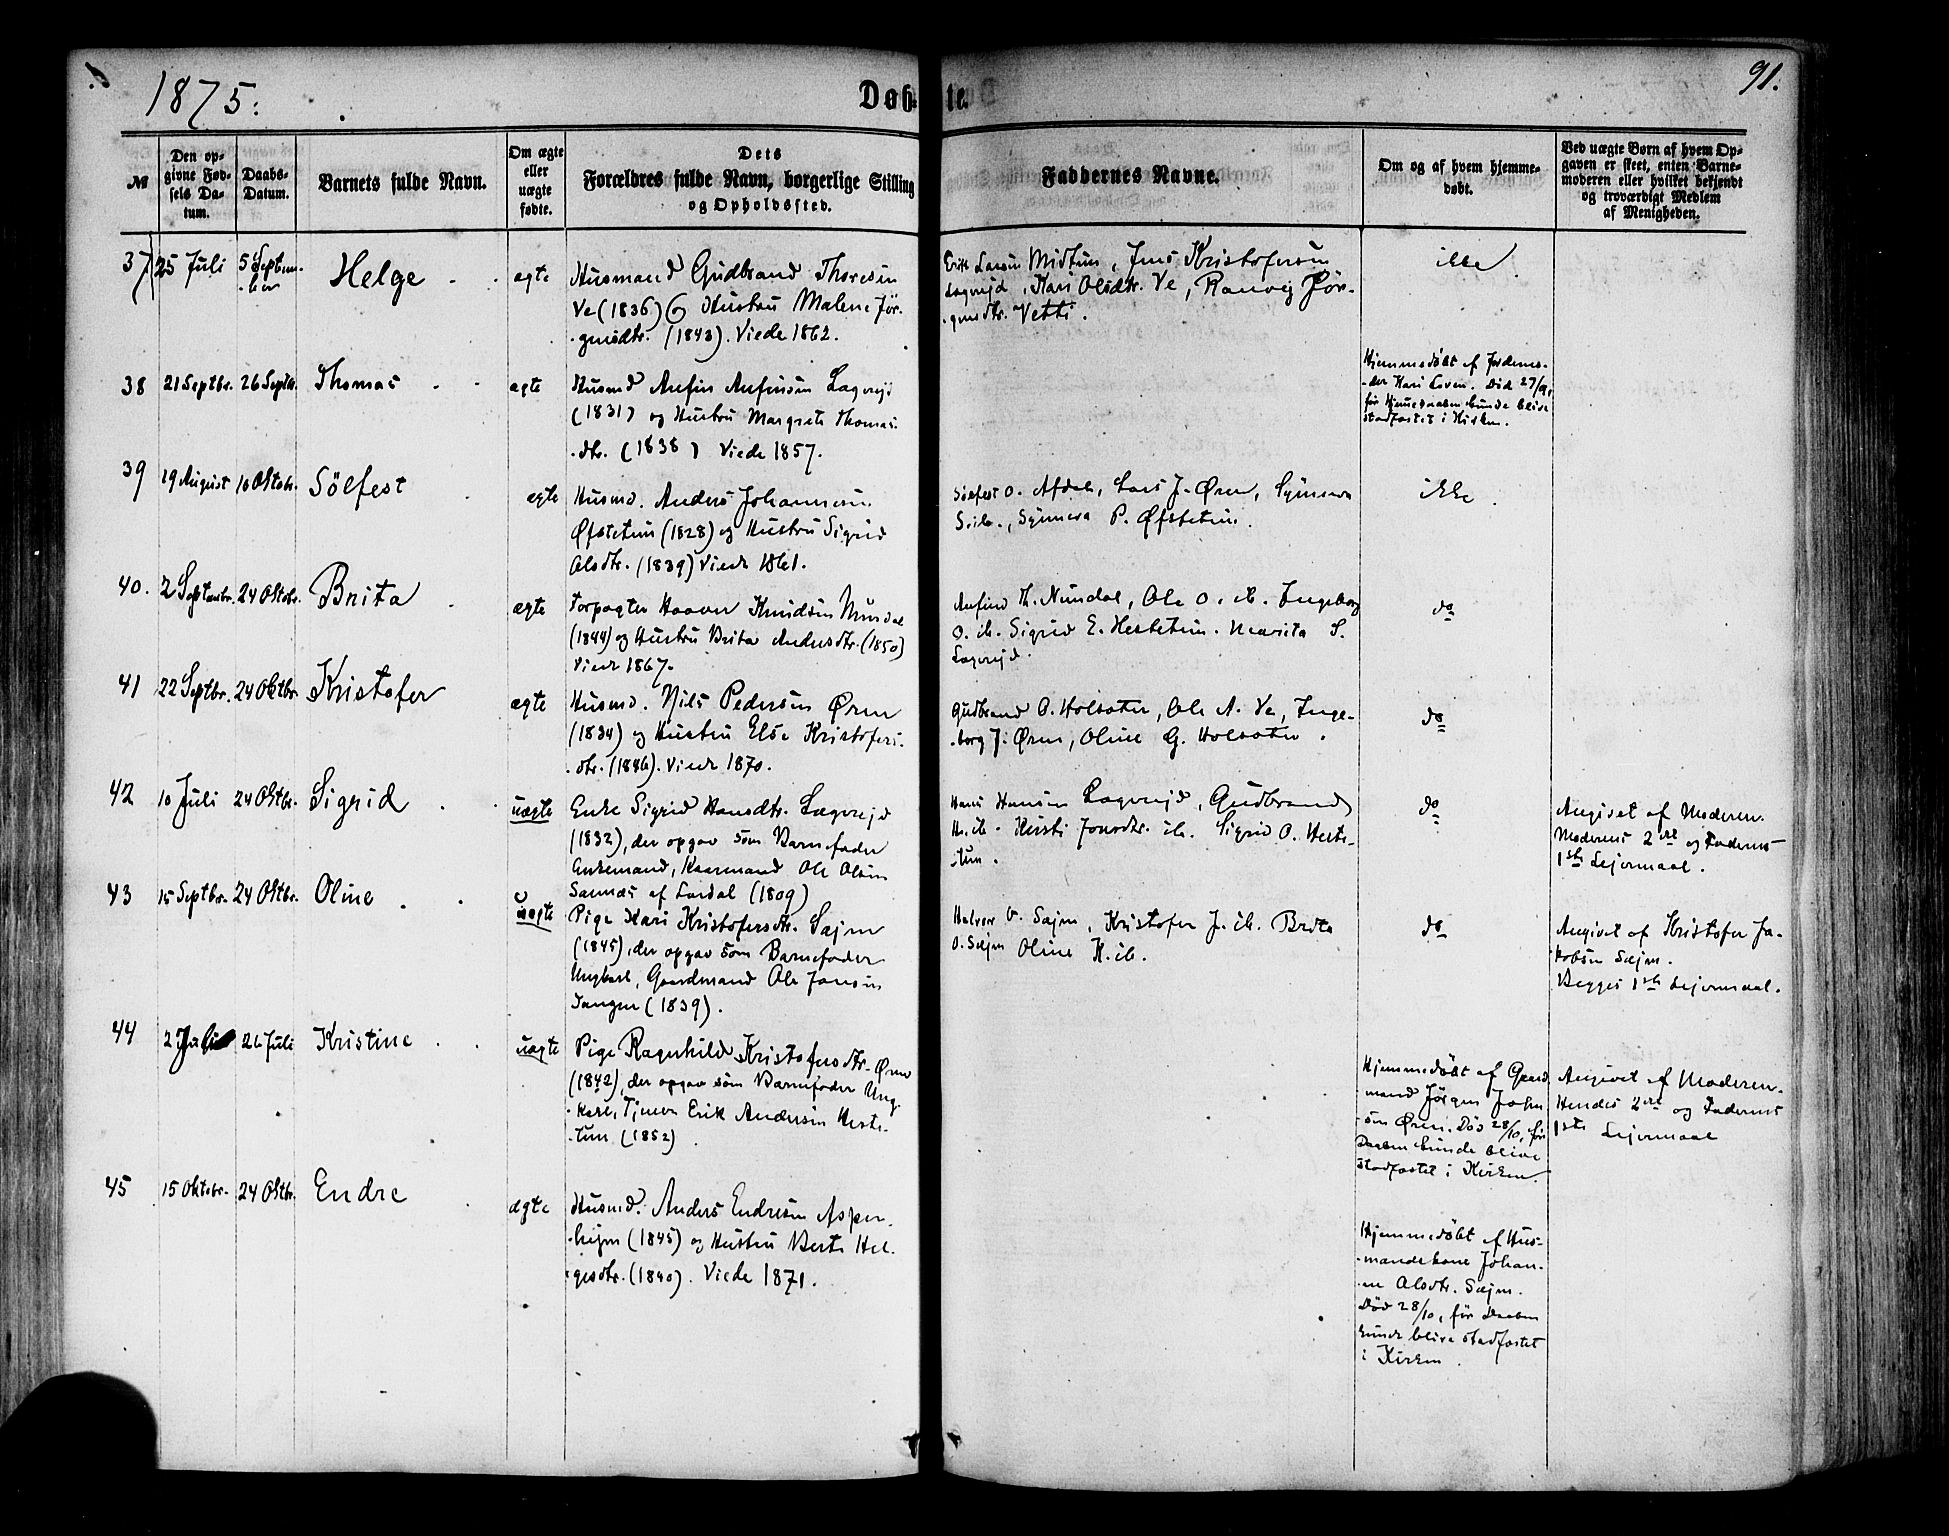 1875.
Døb-
te.
91.
№
Den op-
givne Fød-
sels Da-
tum.
Daabs-
Datum.
Barnets fulde Navn.
Om ægte
eller
uægte
fødte.
Dets
Forældres fulde Navn, borgerlige Stilling
og Opholdssted.
Faddernes Navne.
Om og af hvem hjemme-
døbt.
Ved uægte Børn af hvem Op-
gaven er skeet, enten Barne-
moderen eller hvilket bekjendt
og troværdigt Medlem
af Menigheden.
37 25 Juli 5 Septem-
-ber
Helge
ægte
Husmand Gudbrand Thoresen
Ve (1836) og Hustru Malene Jør-
-gensdtr. (1843). Viede 1862.
Erik Larsen Midtun, Jens Kristofersen
Lægreid, Kari Olsdtr. Ve, Ranveig Jør-
-gensdtr. Vetti.
ikke.
38 21 Septbr. 26 Septbr. Thomas
ægte
Husmd Anfin Anfinsen Lægreid
(1831) og Hustru Margrete Thomas-
-dtr. (1838) Viede 1857.
Hjemmedøbt af Jordemo-
-der Kari Loven. Død 27/9,
før Hjemmedaaben kunde blive
stadfæstet i Kirken.
39 19 August 10 Oktobr. Sølfest
ægte
Husmd. Anders Johannesen
Øfstetun (1828) og Hustru Sigrid
Olsdtr. (1839) Viede 1861.
Sølfest O. Afdal, Lars J. Øren, Synneva
S. ib., Synneva P. Øfstetun.
ikke.
40. 2 Septembr. 24 Oktobr. Brita
ægte
Forpagter Haavar Knudsen Mundal
(1844) og Hustru Brita Andersdtr. (1850)
Viede 1867.
Anfind Th. Nundal, Ole O. ib. Ingeborg
O. ib. Sigrid E. Hestetun. Marita S.
Lægreid.
do
41 22 Septbr. 24 Oktbr. Kristofer
ægte
Husmd. Nils Pedersen Øren
(1834) og Hustru Else Kristofers-
-dtr. (1846). Viede 1870.
Gudbrand O. Holsæter, Ole A. Ve, Inge-
-borg J. Øren, Oline G. Holsæter.
do
42 10 Juli 24 Oktbr. Sigrid
uægte
Enke Sigrid Hansdtr. Lægreid
(1832), der opgav som Barnefader
Enkemand, Kaarmand Ole Olsen
Sannæs af Lærdal (1809)
Hans Hansen Lægreid, Gudbrand
H. ib. Kirsti Jonsdtr. ib. Sigrid O. Heste-
-tun.
do
Angivet af Moderen.
Moderens 2det og Faderens
1ste Lejermaal.
43 15 Septbr. 24 Oktbr. Oline
uægte
Pige Kari Kristofersdtr. Sæjm
(1845), der opgav som Barnefader
Ungkarl, Gaardmand Ole Jonsen
Tangen (1839).
Halvor O. Sæjm, Kristofer J. ib. Brita
O. Sæjm Oline K. ib.
do
Angivet af Kristofer Ja-
-kobsen Sæjm.
Begges 1ste Lejermaal.
44 2 Juli 26 Juli Kristine
uægte
Pige Ragnhild Kristofersdtr. Øren
(1842), der opgav som Barnefader Ung-
-karl, Tjener Erik Andersen Heste-
-tun (1852).
Hjemmedøbt af Gaard-
mand Jørgen John-
-sen Øren. Død 28/10, før
Daaben kunde blive
stadfæstet i Kirken.
Angivet af Moderen.
Hendes 2det og Faderens
1ste Lejermaal
45 15 Oktobr. 24 Oktbr. Endre
ægte
Husmd. Anders Endresen Asper-
-hejm (1845) og Hustru Berte Hel-
-gesdtr. (1840). Viede 1871.
Hjemmedøbt af Hus-
-mandskone Johan-
-ne Olsdtr. Sæjm.
Død 28/10, før Daaben
kunde blive stadfæstet
i Kirken.